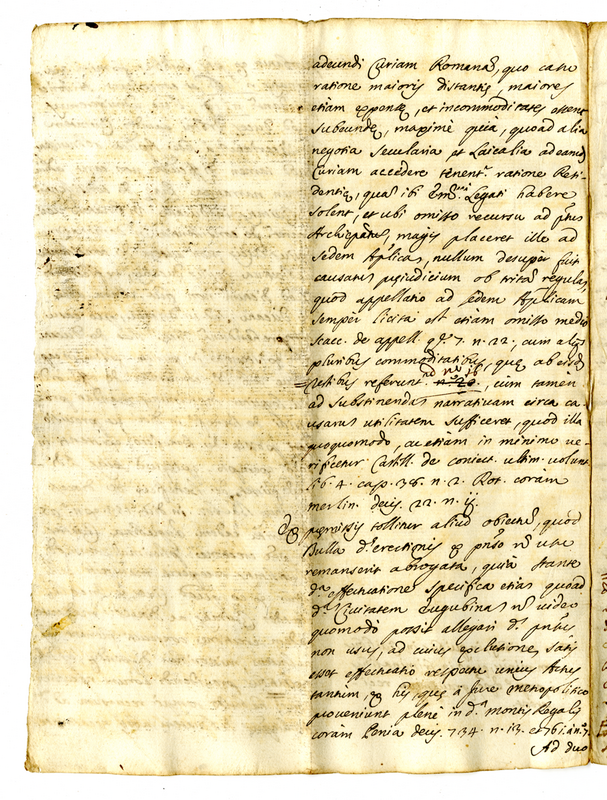 adeundi Curiam Romanã, quo casu
ratione maioris distantię, maiores
etiam expensę, et incommoditates essent
subeundę, maximè quia, quoad alia
negotia secularia et Laicalia ad eand.
Curiam accedere tenent. ratione Resi-
dentię, quã ibi Em.mi Legati habere
solent, et ubi omisso recursu ad p̃tus
Archiep̃atus, magis placeret illo ad
Sedem Ap̃licã, nullum desuper fuit
causatũ p̃iudicium ob tritã regulã,
quod appellatio ad sedem Ap̃licam
semper licita est etiam omisso medio
Scacc. de appell. q. 7. n. 22., cum alijs
pluribus commoditatibus, quę ab eisd.
testibus referunt. , cum tamen
ad substinendã narrativam circa ca-
usam utilitatem sufficeret, quod illa
quoquomodo, ac etiam in minimo ve-
rificetur Castill. de coniect. ultim. volunt.
lib. 4. cap. 38. n. 2. Rot. coràm
merlin. decis. 22. n. ij.
Ex p̃missis tollitur aliud obiectũ, quòd
Bulla d. erectionis ex non usu
remanserit abrogata, quia stante
d.a effectuatione specifica etiã quoad
d.ã Civitatem Eugubinã nõ video
quomodo possit allegari d.
non usus, ad cuius exclusionẽ satis
esset effectuatio respectu unius Actus
tantum, ex his, quę à Jure metropolitico
proveniunt plenè in d.a montis Regalis
coràm Penia decis. 734. n. 13. et 761. in .
Ad duo